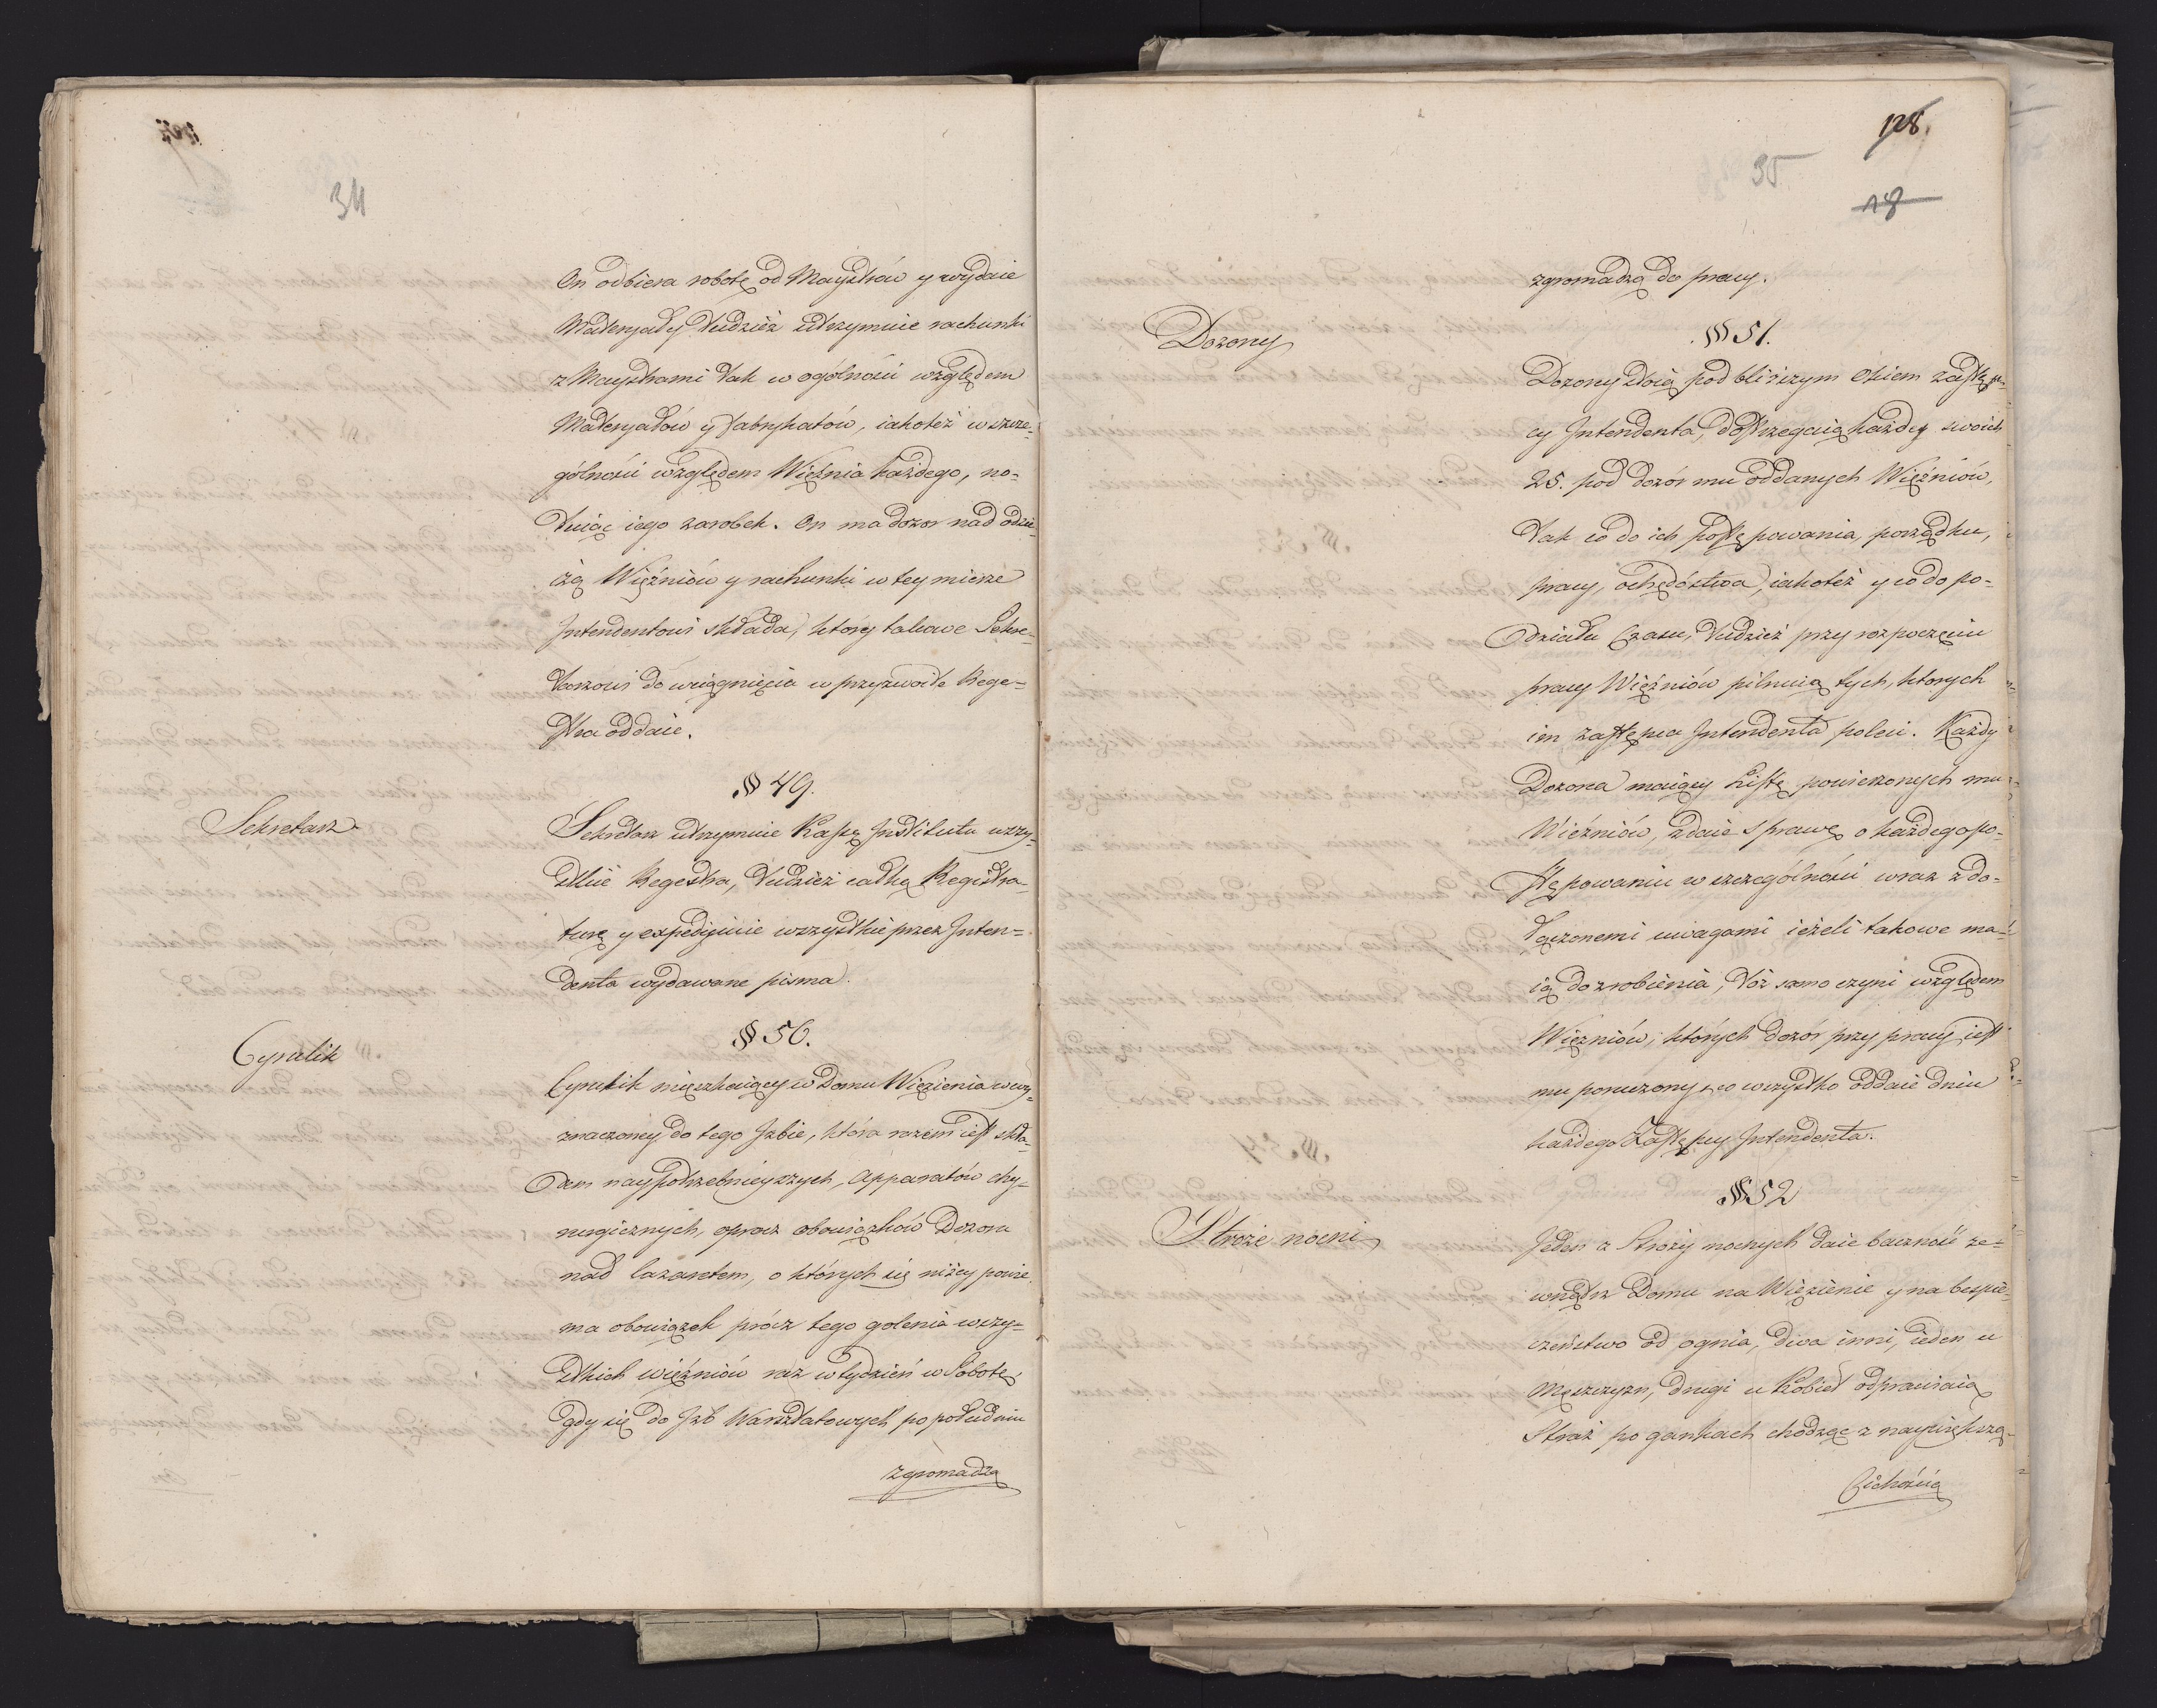 34
On odbiera robotę od Maystrów y wydaie
Materyały tudzież utrzymuie rachunki
z Maystrami tak w ogólności względem
Materyałów y fabrykatów, iakoteż w szcze-
gólności względem Więźnia każdego, no-
tuiąc iego zarobek. On ma dozor nad odzie-
żą Więźniów y rachunki w tey mierze
Intendentowi składa, ktory takowe Sekre-
tarzowi do wciągnięcia w przyzwoite Rege-
stra oddaie.
§ 49.
Sekretarz
Sekretarz utrzymuie Kassę Institutu wszy-
stkie Regestra, tudzież całką Registra-
turę y expedyiuie wszystkie przez Inten-
denta wydawane pisma.
§ 50.
Cyrulik
Cyrulik mięszkaiący w Domu Więzienia w wy-
znaczoney do tego Izbie, która razem iest skła-
dem naypotrzebnieyszych, Apparatów chy-
rurgicznych, oprocz obowiązków Dozoru
nad lazaretem, o których się niżey powie
ma obowiązek prócz tego golenia wszy-
stkich więźniów raz w tydzień w Sobotę,
gdy się do Izb Warsztatowych po południu
zgromadzą
128.
35
18
zgromadzą do pracy.
§ 51.
Dozorcy
Dozorcy stoią pod bliższym Okiem zastęp-
cy Intendenta, dostrzegaią każdy swoich
25. pod dozór mu oddanych Więźniów,
tak co do ich postępowania, porządku,
pracy, ochędóstwa, iakoteż y co do po-
działu Czasu, tudzież przy rozpoczęciu
pracy Więźniów pilnuią tych, ktorych
im zastępca Intendenta poleci. Każdy
Dozorca maiący Listę powierzonych mu
Więźniów, zdaie sprawę o każdego po-
stępowaniu w szczególności wraz z do-
łączonemi uwagami ieżeli takowe ma-
ią do zrobienia, toż samo czyni względem
Więźniów, których dozór przy pracy iest
mu poruczony, co wszystko oddaie dniu
każdego Zastępcy Intendenta.
§ 52
Stróże nocni
Jeden z Stróży nocnych daie baczność ze-
wnątrz Domu na Więzienie y na bezpie-
czeństwo od ognia, dwa inni, ieden u
Męszczyzn, drugi u Kobiet odprawiaią
Straż po gankach chodząc z naywiększą
Cichością